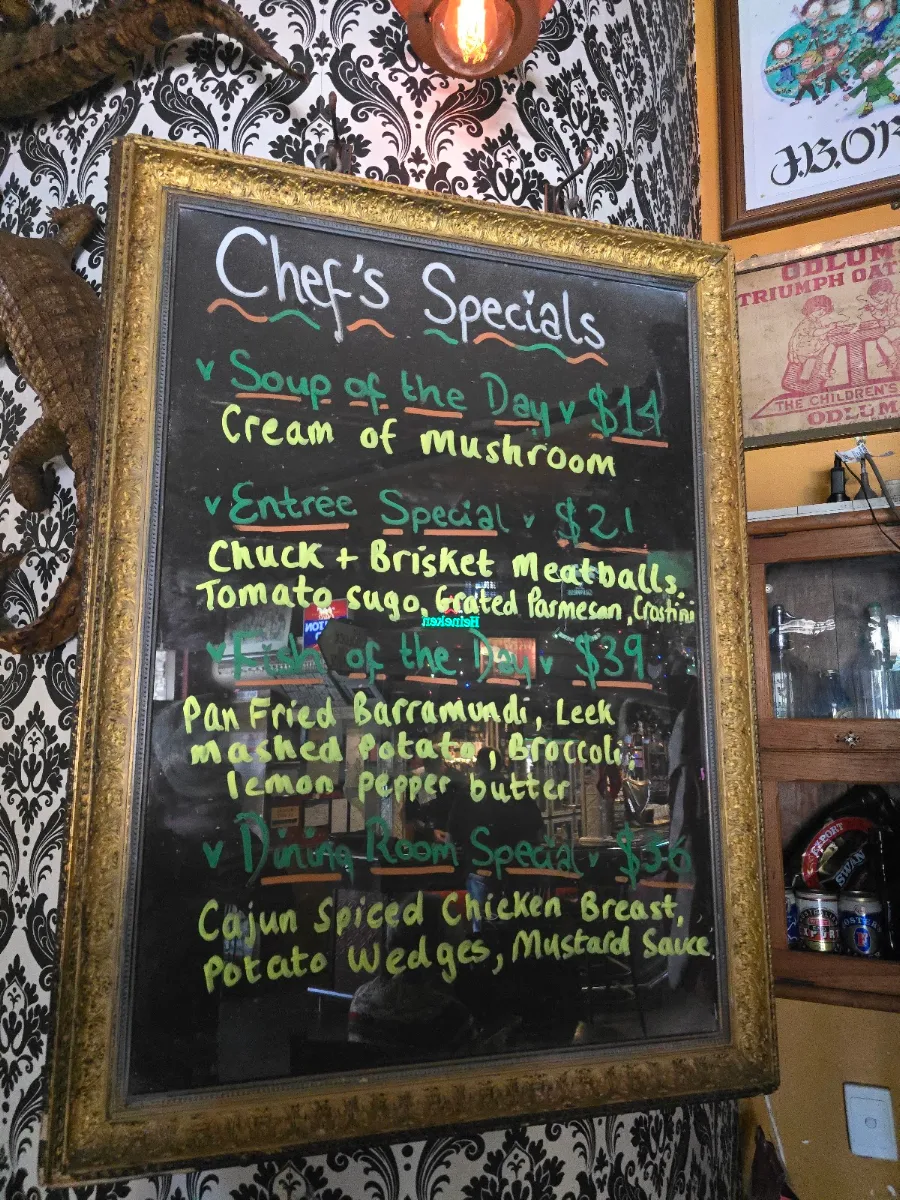 Chef's Specials
v Soup of the Day v $14
Cream of mushroom
v Entrée Special v $21
Chuck + Brisket Meatballs,
Tomato sugo, Grated Parmesan, Crostini
v Fish of the Day v $39
Pan Fried Barramundi, Leek
mashed Potato, Broccoli,
lemon pepper butter
v Dining Room Special v $36
Cajun Spiced Chicken Breast,
Potato Wedges, Mustard Sauce
Heineken
J.B.OR
ODLUM
TRIUMPH OAT
THE CHILDREN'S
ODLUM
EXPORT
SWAN